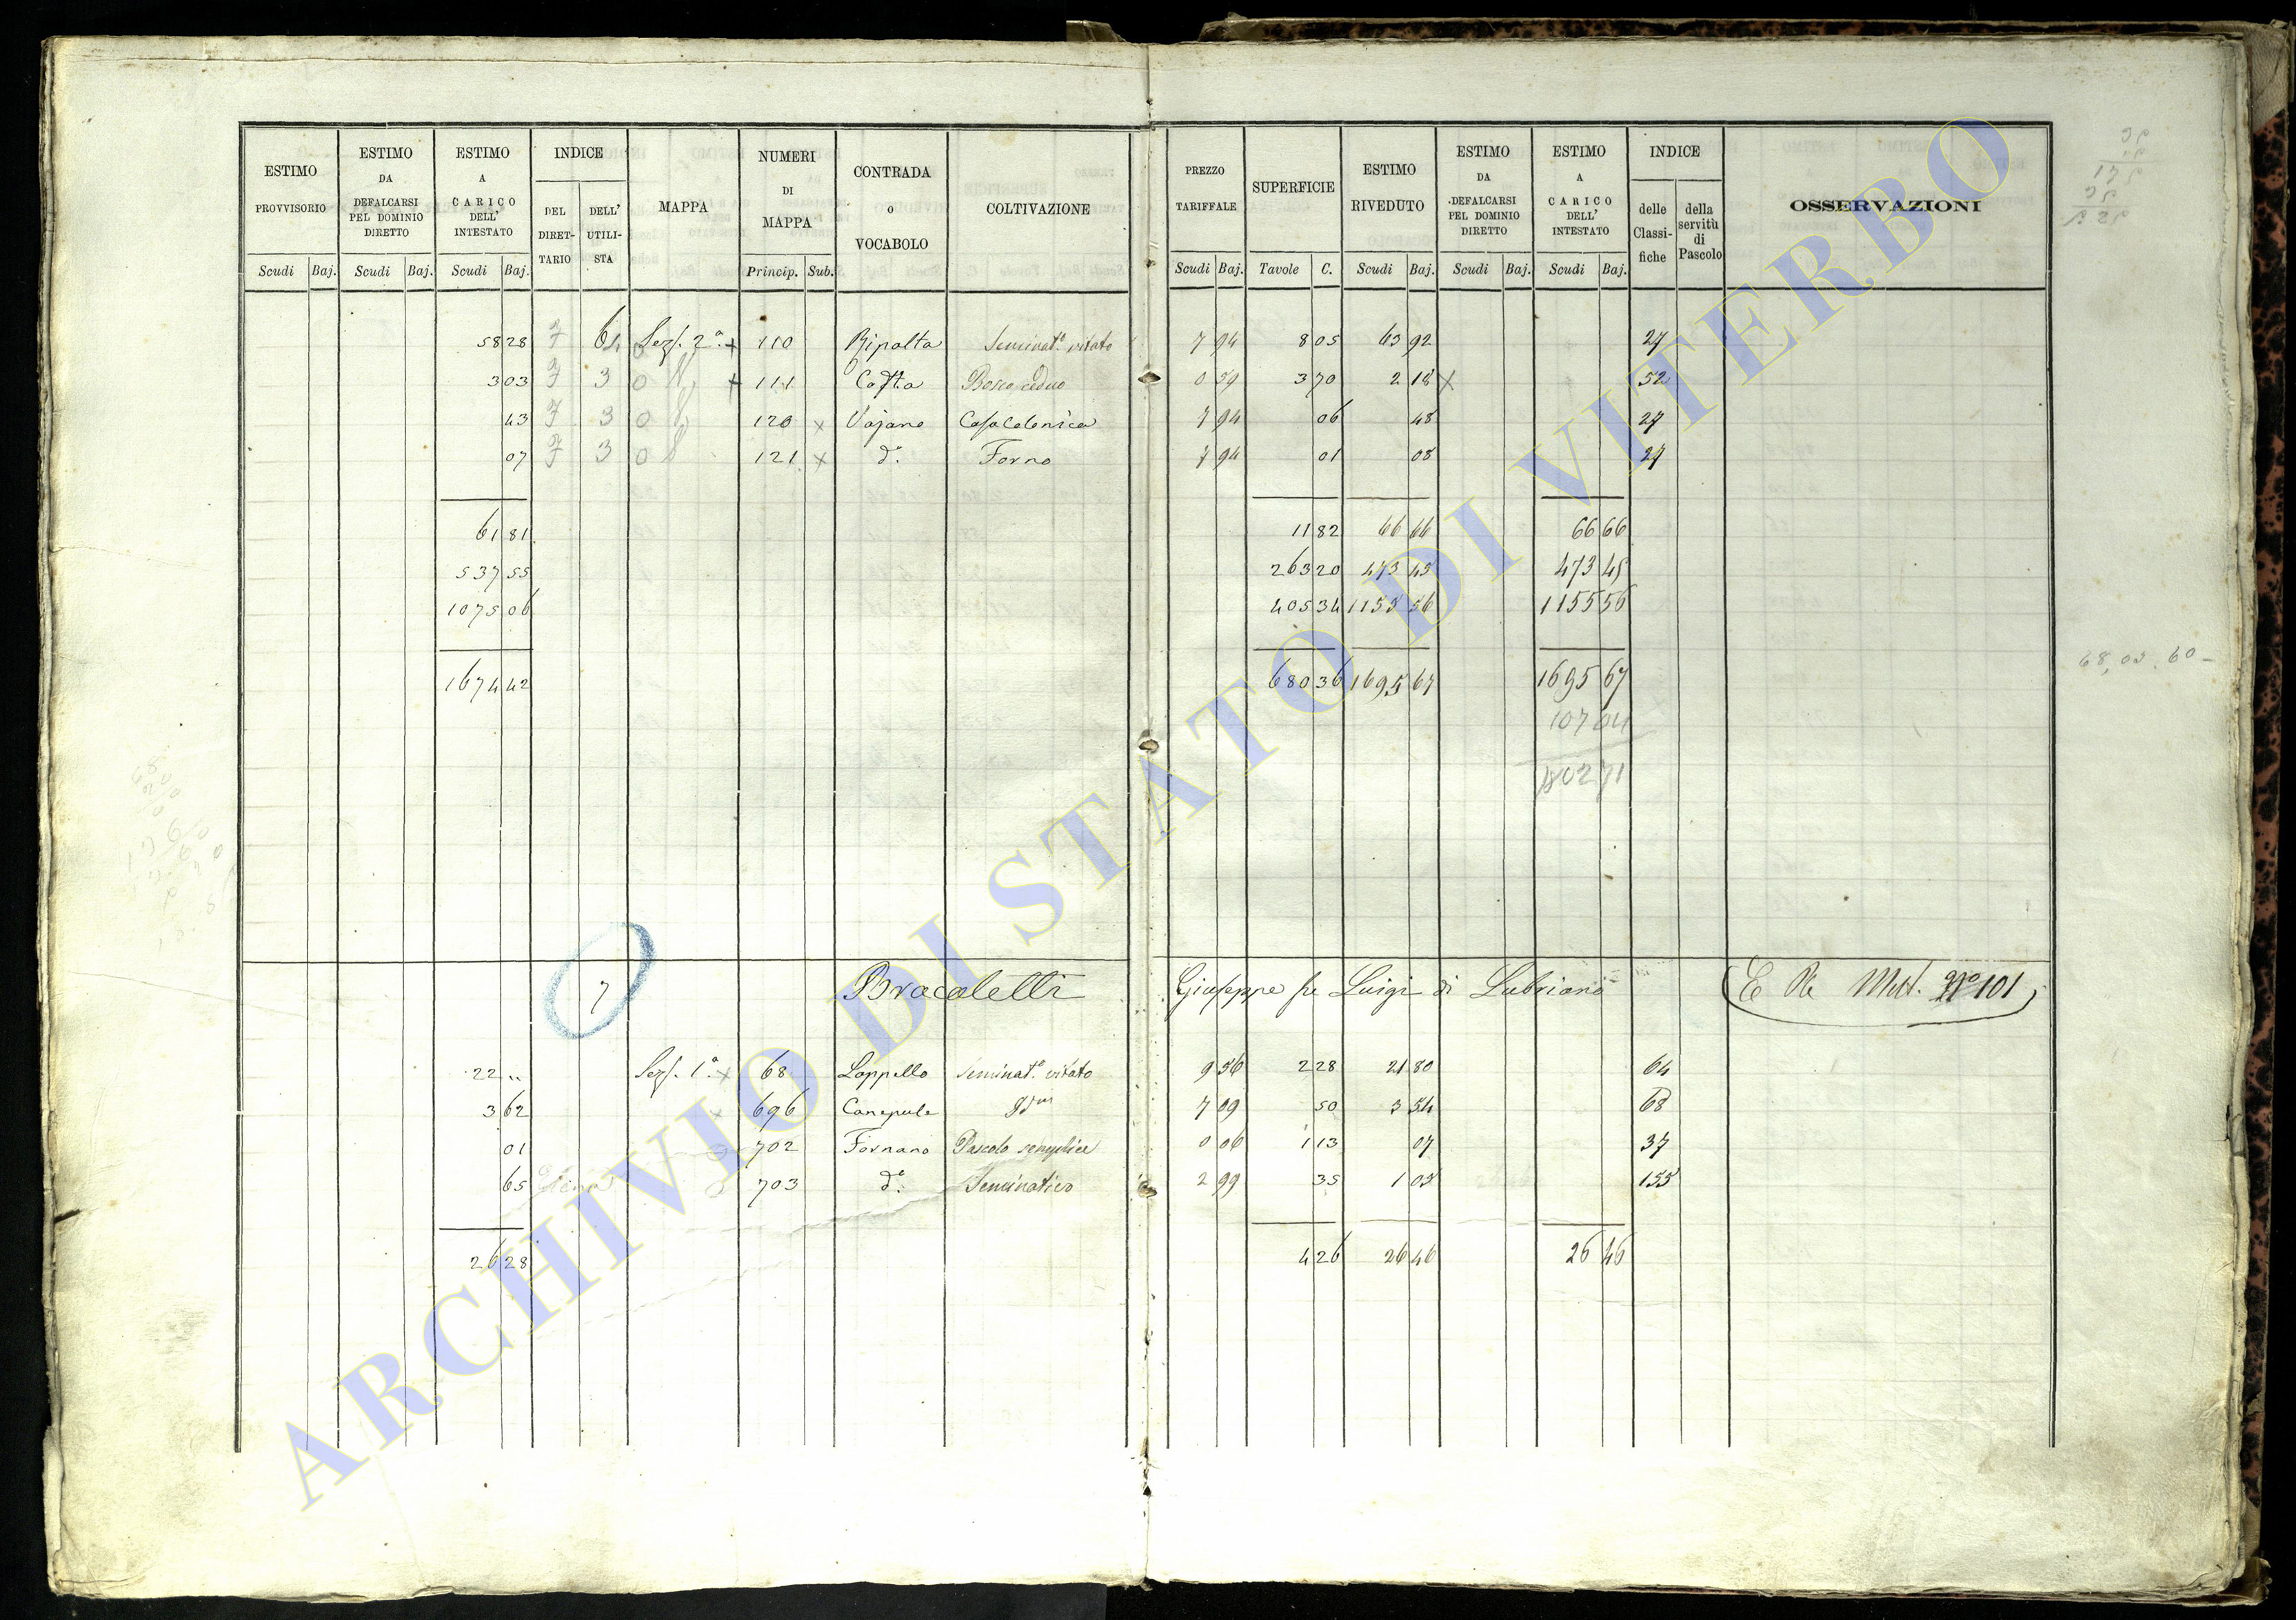 ESTIMO PROVVISORIO Scudi Baj. ESTIMO DA DEFALCARSI PEL DOMINIO DIRETTO Scudi Baj. ESTIMO A CARICO DELL' INTESTATO Scudi Baj. INDICE DEL DIRET-TARIO DELL' UTILI-STA MAPPA NUMERI DI MAPPA Princip. Sub. CONTRADA O VOCABOLO COLTIVAZIONE PREZZO TARIFFALE Scudi Baj. SUPERFICIE Tavole C. ESTIMO RIVEDUTO Scudi Baj. ESTIMO DA DEFALCARSI PEL DOMINIO DIRETTO Scudi Baj. ESTIMO A CARICO DELL' INTESTATO Scudi Baj. INDICE delle Classi-fiche della servitù di Pascolo OSSERVAZIONI
58 28 Sez. 2ª + 110 Ripalta Seminatº vitato 7 94 8 05 63 92 27
3 03 3 0 + 111 Costa Bosco ceduo 0 59 3 70 2 18 x 52
43 3 0 120 x Vajano Casa Colonica 7 94 06 48 27
07 3 0 121 x dº Forno 7 94 01 08 27
61 81 11 82 66 66 66 66
537 55 263 20 473 45 473 45
1075 06 405 34 1155 56 1155 56
1674 42 680 36 1695 67 1695 67
107 04
1802 71
68,03.60-
7 Bracaletti Giuseppe fu Luigi di Lubriano E Re Mut. Nº 101
22 .. Sez. 1ª x 68 Lappello Seminatº vitato 9 56 2 28 21 80 64
3 62 x 696 Canepule Idm 7 09 50 3 54 68
01 702 Fornano Pascolo semplice 0 06 1 13 07 37
65 703 dº Seminativo 2 99 35 1 05 155
26 28 4 26 26 46 26 46
ARCHIVIO DI STATO DI VITERBO